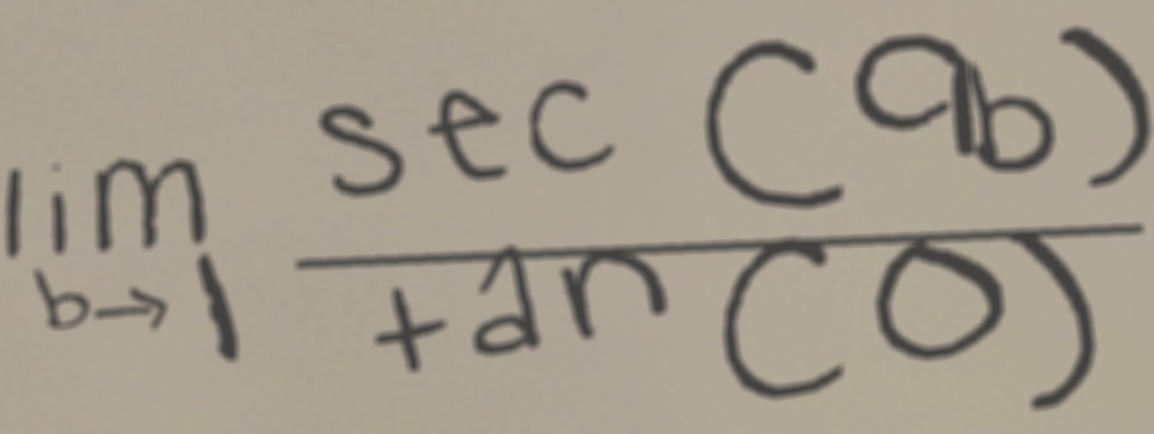 lim b→1 sec(9b) / tan(0)